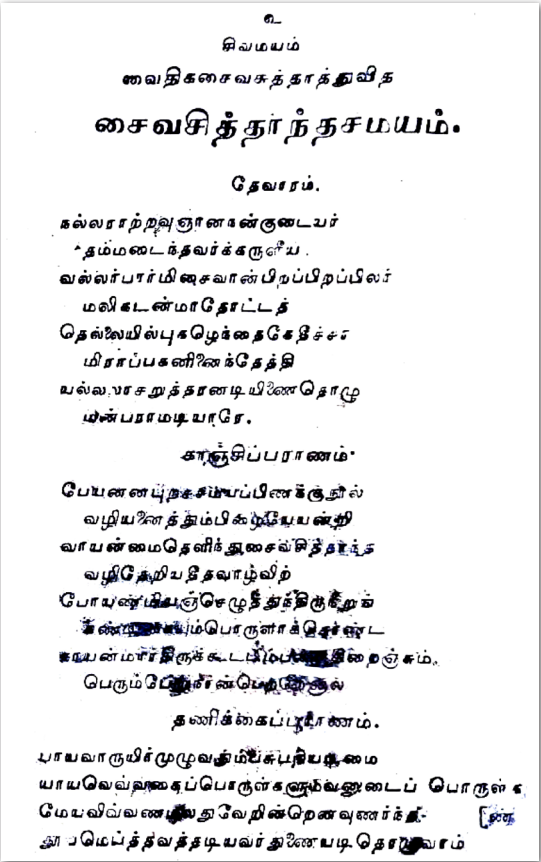 ௨
சிவமயம்
வைதிகசைவசுத்தாத்துவித
சைவசித்தாந்தசமயம்.
தேவாரம்.
நல்லராற்றவுஞானநன்குடையர்
தம்மடைந்தவர்க்கருளீய
வல்லர்பார்மிசைவான்பிறப்பிறப்பிலர்
மலிகடன்மாதோட்டத்
தெல்லையில்புகழெந்தைகேதீச்சர
மிராப்பகனினைந்தேத்தி
யல்லலாசறுத்தரனடியிணைதொழு
மன்பராமடியாரே.
காஞ்சிப்புராணம்.
பேயனன
வழியனைத்தும்பிழையேயன்றி
வாயன்மைதெளிந்துசைவசித்தாந்த
வழிதேறியதிதவாழ்விற்
திருக்கூட
பெரும்
தணிக்கைப்புராணம்.
பாயவாருயிர்முழுவதும்பசுபதியடிமை
யாயவெவ்வகைப்பொருள்களுமவனுடைப் பொருள்க
மேயவிவ்வணமலதுவேறின்றெனவுணர்ந்த [ளென
தூயமெய்த்தவத்தடியவர்துணையடிதொழுவாம்